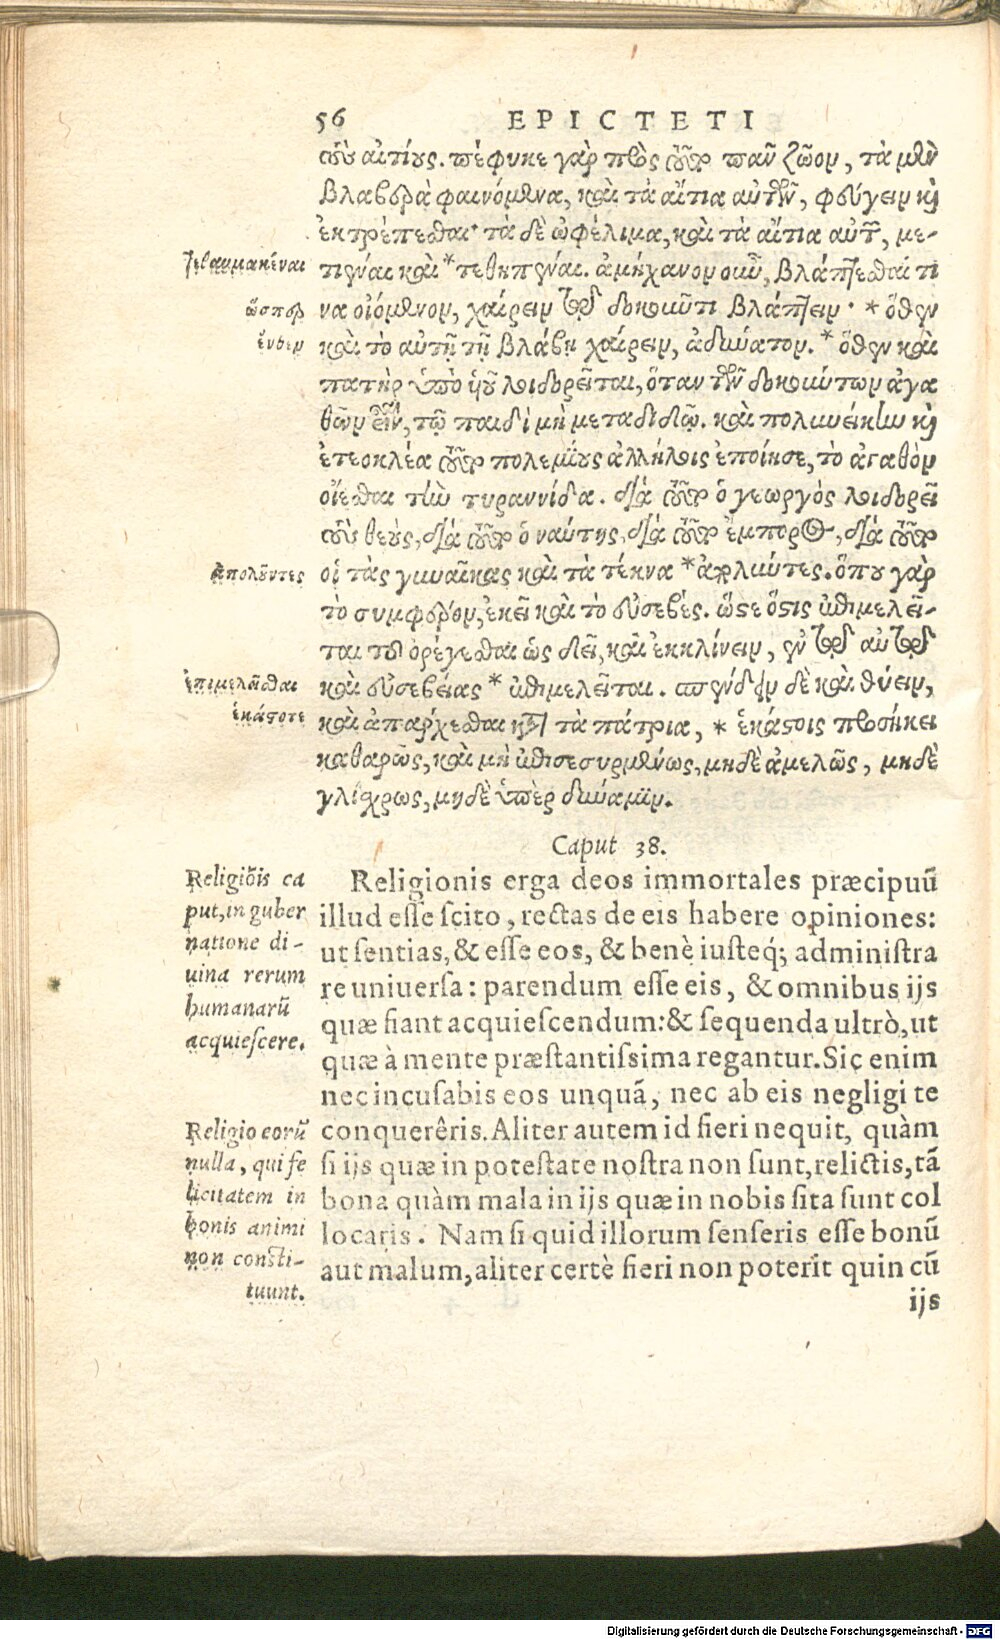 56 EPICTETI
τοὺς αἰτίους. πέφυκε γὰρ πρὸς τοῦτο πᾶν ζῶον, τὰ μὲν
βλαβερὰ φαινόμενα, καὶ τὰ αἴτια αὐτῶν, φεύγειν κỳ
ἐκτρέπεσθαι· τὰ δὲ ὠφέλιμα, καὶ τὰ αἴτια αὐτῶν, με-
τιέναι καὶ *τεθηπέναι. ἀμήχανον οὖν, βλάπτεσθαί τι
να οἰόμενον, χαίρειν τῷ δοκοῦντι βλάπτειν· * ὅθεν
καὶ τὸ αὐτῇ τῇ βλάβῃ χαίρειν, ἀδύνατον. * ὅθεν καὶ
πατὴρ ὑπὸ ὑοῦ λοιδορεῖται, ὅταν τῶν δοκούντων ἀγα
θῶν εἶναι, τῷ παιδὶ μὴ μεταδιδῷ. καὶ πολυνείκην κỳ
ἐτεοκλέα τοῦτο πολεμίους ἀλλήλοις ἐποίησε, τὸ ἀγαθὸν
οἴεσθαι τὴν τυραννίδα. διὰ τοῦτο ὁ γεωργὸς λοιδορεῖ
τοὺς θεούς, διὰ τοῦτο ὁ ναύτης, διὰ τοῦτο ὁ ἔμπορος, διὰ τοῦτο
οἱ τὰς γυναῖκας καὶ τὰ τέκνα *ἀπολλύντες. ὅπου γὰρ
τὸ συμφέρον, ἐκεῖ καὶ τὸ εὐσεβές. ὥστε ὅστις ἐπιμελεῖ-
ται τοῦ ὀρέγεσθαι ὡς δεῖ, καὶ ἐκκλίνειν, ἐν τῷ αὐτῷ
καὶ εὐσεβείας * ἐπιμελεῖται. σπένδειν δὲ καὶ θύειν,
καὶ ἀπάρχεσθαι κατὰ τὰ πάτρια, * ἑκάστοις προσήκει
καθαρῶς, καὶ μὴ ἐπισεσυρμένως, μηδὲ ἀμελῶς, μηδὲ
γλίσχρως, μηδὲ ὑπὲρ δύναμιν.
τεθαυμακέναι
ὥσπερ
ἀπολοῦντες
ἐπιμελεῖσθαι
ἑκάστοτε
Caput 38.
Religionis erga deos immortales præcipuũ
illud esse scito, rectas de eis habere opiniones:
ut sentias, & esse eos, & benè iusteq́; administra
re uniuersa: parendum esse eis, & omnibus ijs
quæ fiant acquiescendum: & sequenda ultrò, ut
quæ à mente præstantissima regantur. Sic enim
nec incusabis eos unquã, nec ab eis negligi te
conquerêris. Aliter autem id fieri nequit, quàm
si ijs quæ in potestate nostra non sunt, relictis, tã
bona quàm mala in ijs quæ in nobis sita sunt col
locaris. Nam si quid illorum senseris esse bonũ
aut malum, aliter certè fieri non poterit quin cũ
ijs
Religiõis ca
put, in guber
natione di-
uina rerum
humanarũ
acquiescere.
Religio eorũ
nulla, qui fe
licitatem in
bonis animi
non consti-
tuunt.
Digitalisierung gefördert durch die Deutsche Forschungsgemeinschaft - DFG